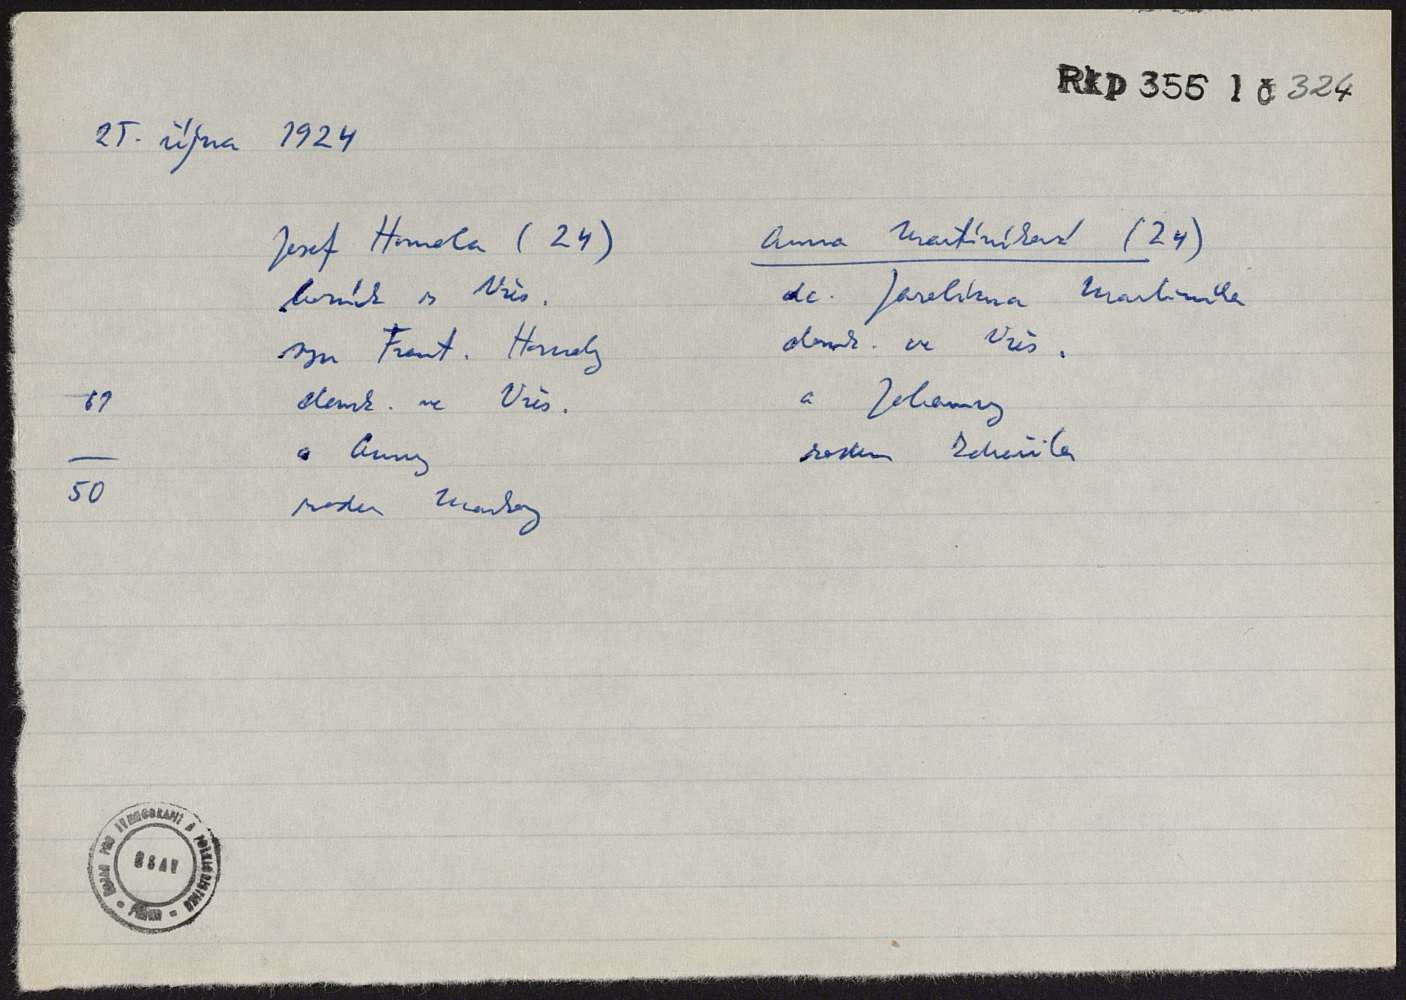 Rkp 355 1 č 324
25. října 1924
Josef Homola (24)
horník z Vřes.
syn Frant. Homoly
domk. ve Vřes.
a Anny
rozen
Anna Martiníková (24)
dc. Martiníka
domk. ve Vřes.
a Johanny
rozen Zdražila
61
50
ÚSTAV PRO ETNOGRAFII A FOLKLORISTIKU
ČSAV
PRAHA